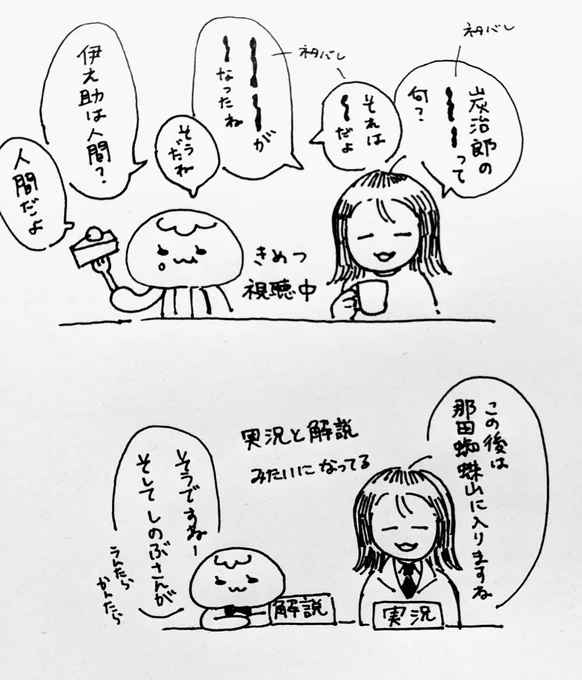 ネタバレ
炭治郎の
って
何?
ネタバレ
それは
だよ
が
なったね
そうだね
伊之助は人間?
人間だよ
きめつ
視聴中
この後は
那田蜘蛛山に入りますね
実況と解説
みたいになってる
そうですねー
そしてしのぶさんが
うんたら
かんたら
解説
実況